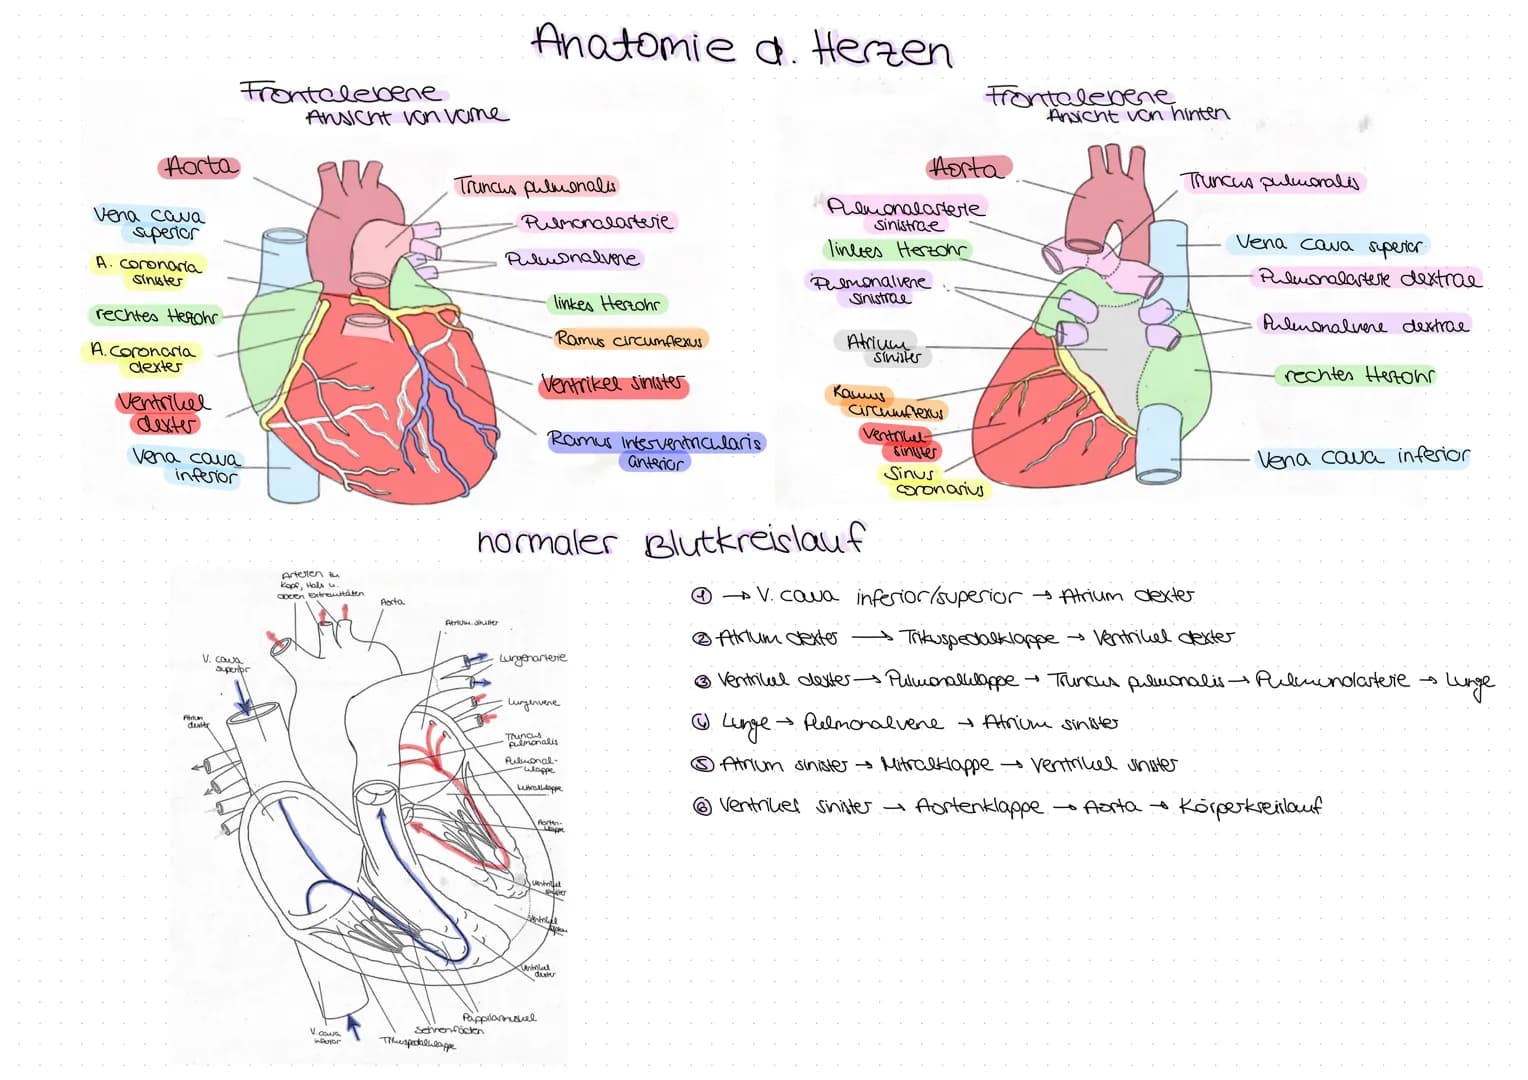 Anatomie d. Herzen
Frontalebene
Ansicht von vorne
Aorta
Vena cava
superior
A. coronaria
sinister
rechtes Herzohr
A. coronaria
dexter
Ventrikel
dexter
Vena cava
inferior
Truncus pulmonalis
Pulmonalarterie
Pulmonalvene
linkes Herzohr
Ramus circumflexus
Ventrikel sinister
Ramus interventricularis
anterior
Frontalebene
Ansicht von hinten
Aorta
Pulmonalarterie
sinistrae
linkes Herzohr
Pulmonalvene
sinistrae
Atrium
sinister
Ramus
circumflexus
Ventrikel
sinister
Sinus
coronarius
Truncus pulmonalis
Vena cava superior
Pulmonalarterie dextrae
Pulmonalvene dextrae
rechtes Herzohr
Vena cava inferior
normaler Blutkreislauf
Arterien zu
Kopf, Hals u.
oberen Extremitäten
Aorta
Atrium sinister
V. cava
superior
Atrium
dexter
Lungenarterie
Lungenvene
Truncus
pulmonalis
Pulmonal-
klappe
Mitralklappe
Aorten-
klappe
Ventrikel
sinister
Ventrikel
Ventrikel
dexter
Pappilarmuskel
Sehnenfäden
Trikuspedalklappe
V. cava
inferior
① → V. cava inferior/superior → Atrium dexter
② Atrium dexter → Trikuspedalklappe → Ventrikel dexter
③ Ventrikel dexter → Pulmonalklappe → Truncus pulmonalis → Pulmonalarterie → Lunge
④ Lunge → Pulmonalvene → Atrium sinister
⑤ Atrium sinister → Mitralklappe → Ventrikel sinister
⑥ Ventrikel sinister → Aortenklappe → Aorta → Körperkreislauf